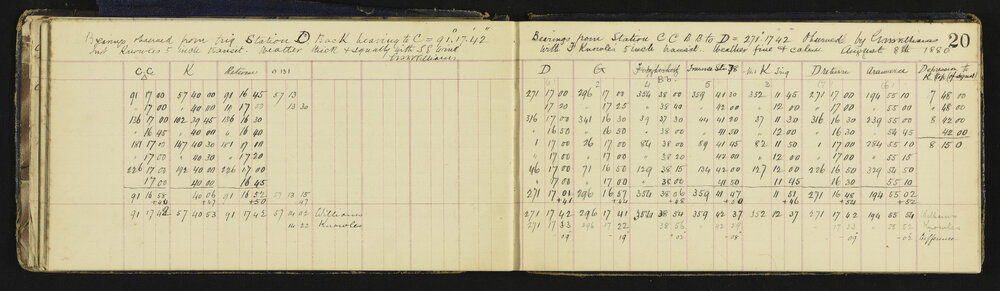 Bearings observed from Trig Station D Back bearing to C = 91.17.42
inst Knowles 5 inch transit. Weather thick & squally with SE Wind
GWWilliams
C K Returns 0 131
91 17 00 57 40 00 91 16 45 57 13
" 17 00 " 40 00 17 00 13 30
136 17 00 102 39 45 136 16 30
" 16 45 " 40 00 " 16 40
181 17 00 147 40 30 181 17 10
" 17 00 " 40 30 " 17 20
226 17 00 192 40 00 226 17 00
17 00 40 00 16 45
91 16 58 40 06 91 16 52 57 13 15
+44 +47 +50 +47
91 17 42 57 40 53 91 17 42 57 14 02 Williams
14 22 Knowles
Bearings from Station C C B B to D = 271° 17 42 Observed by GWWilliams
with F Knowles 5 inch transit. Weather fine & calm. August 8th 1880
20
D G K Trig D return Depression to
2 4 5 3
271 17 00 296 17 00 354 38 00 359 41 30 352 11 45 271 17 00 194 55 10 7 48 00
" 17 20 " 17 25 " 38 40 " 42 00 " 12 00 " 17 00 " 55 00 " 48 00
316 17 00 341 16 30 39 37 30 44 41 20 37 11 30 316 16 30 239 55 00 8 42 00
" 16 50 " 16 50 " 38 00 " 41 50 " 12 00 " 16 30 " 54 45 42 00
1 17 00 26 17 00 84 38 00 89 41 45 82 11 50 1 17 00 284 55 10 8 15 0
" 17 00 " 17 00 " 38 20 " 42 00 " 12 00 " 17 00 " 55 15
46 17 00 71 16 50 129 38 15 134 42 00 127 12 00 226 16 50 329 54 50
17 00 17 00 38 00 41 50 11 45 16 30 55 10
271 17 01 296 16 57 354 38 06 359 41 47 11 51 271 16 48 194 55 02
+41 +44 +48 +51 +46 +54 +52
271 17 42 296 17 41 354 38 54 359 42 37 352 12 37 271 17 42 194 55 54 Williams
271 17 33 296 17 22 38 56 42 29 17 33 Knowles
09 19 02 08 09 Difference